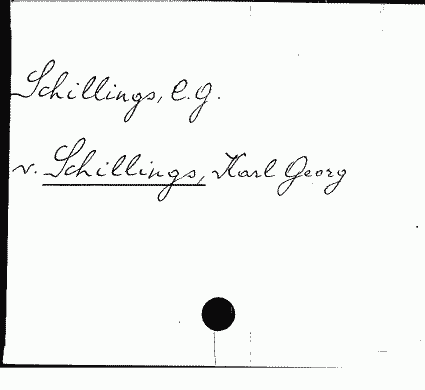 Schillings, C.G.
v. Schillings, Karl Georg